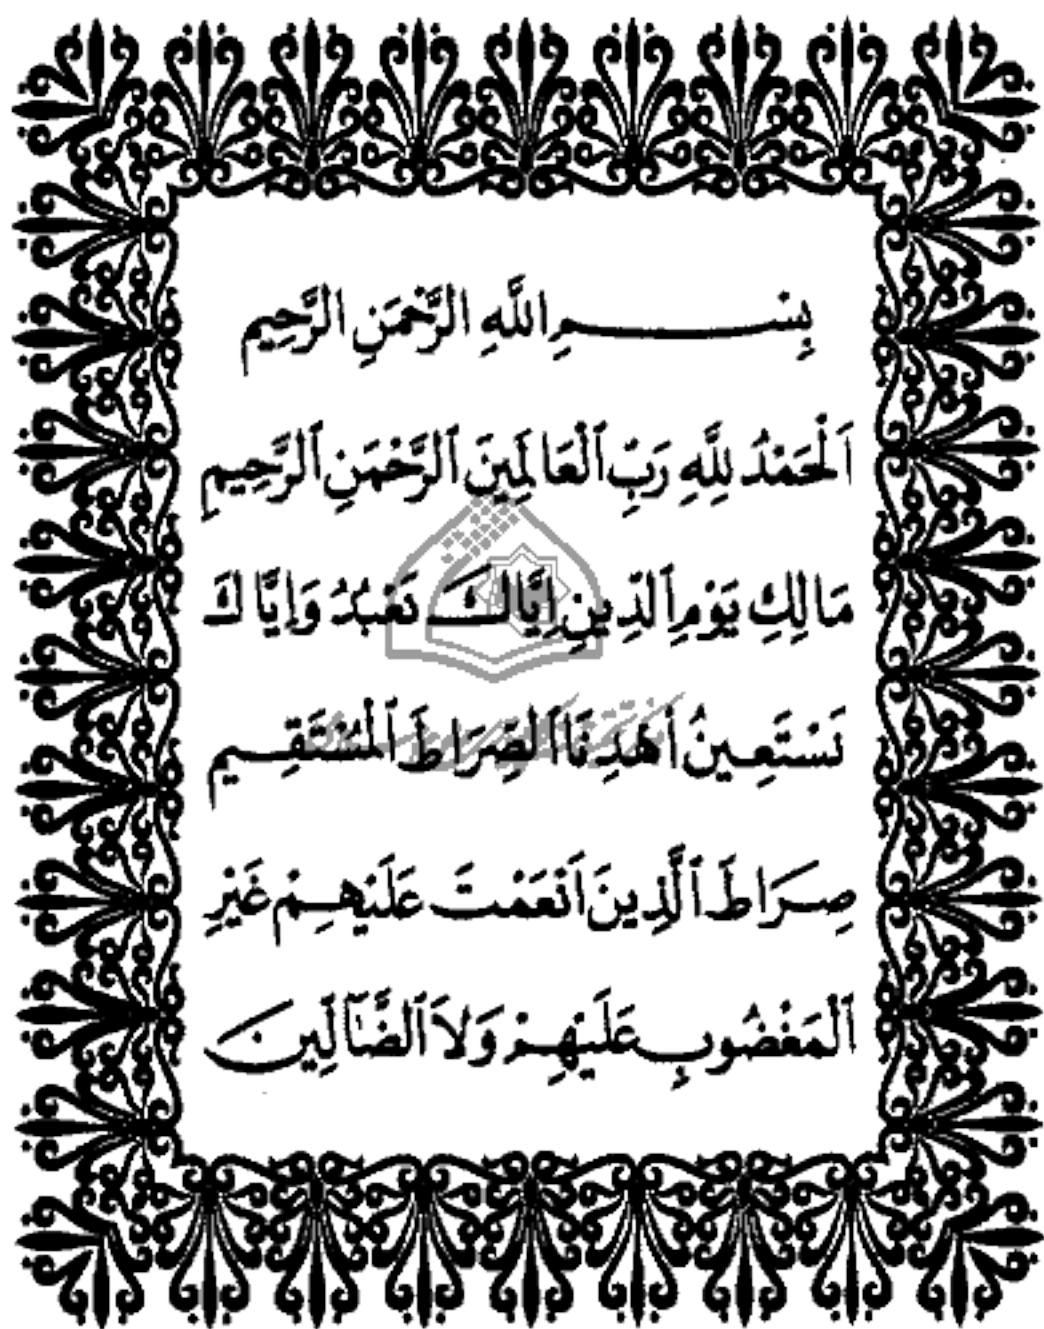 بِسْمِ اللَّهِ الرَّحْمَنِ الرَّحِيمِ
اَلْحَمْدُ لِلَّهِ رَبِّ ٱلْعَالَمِينَ ٱلرَّحْمَنِ ٱلرَّحِيمِ
مَالِكِ يَوْمِ ٱلدِّينِ إِيَّاكَ نَعْبُدُ وَإِيَّاكَ
نَسْتَعِينُ اَهْدِنَا اَلصِّرَاطَ ٱلْمُسْتَقِيمَ
صِرَاطَ ٱلَّذِينَ اَنْعَمْتَ عَلَيْهِمْ غَيْرِ
ٱلْمَغْضُوبِ عَلَيْهِمْ وَلاَ ٱلضَّآلِّينَ